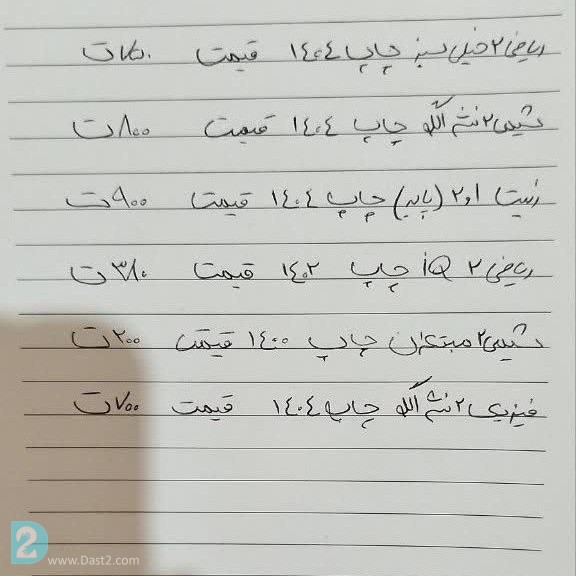 ریاضی ۲ خیلی سبز چاپ ۱۴۰۴ قیمت ۷۵۰ ت
شیمی ۲ نشر الگو چاپ ۱۴۰۴ قیمت ۸۰۰ ت
زیست ۱و۲ (پایه) چاپ ۱۴۰۴ قیمت ۹۰۰ ت
ریاضی ۲ IQ چاپ ۱۴۰۲ قیمت ۳۸۰ ت
شیمی ۲ مبتکران چاپ ۱۴۰۰ قیمت ۲۰۰ ت
فیزیک ۲ نشر الگو چاپ ۱۴۰۴ قیمت ۷۰۰ ت
D2 www.Dast2.com